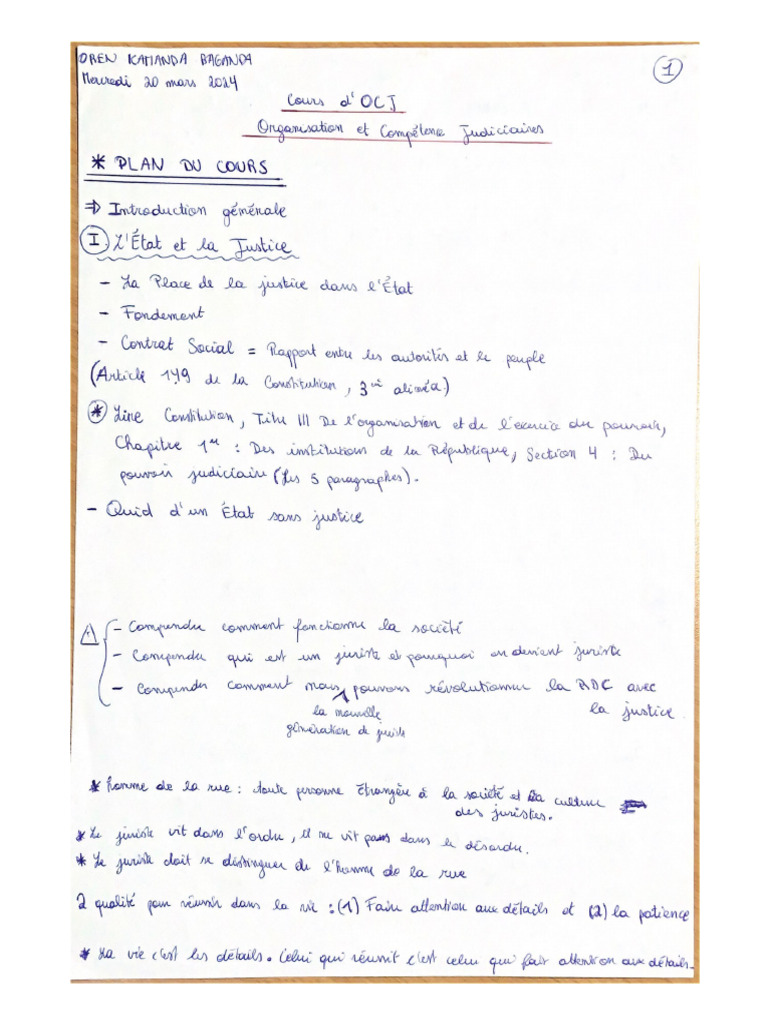 OREN KAMANDA BAGANDA
1
Mercredi 20 mars 2024
Cours d'OCJ
Organisation et Compétence Judiciaires
* PLAN DU COURS
⇒ Introduction générale
I. L'État et la Justice
- La Place de la justice dans l'État
- Fondement
- Contrat Social = Rapport entre les autorités et le peuple
(Article 149 de la Constitution, 3ème alinéa)
* Lire Constitution, Titre III De l'organisation et de l'exercice du pouvoir,
Chapitre 1er : Des institutions de la République, Section 4 : Du
pouvoir judiciaire (Les 5 paragraphes).
- Quid d'un État sans justice
- Comprendre comment fonctionne la société
- Comprendre qui est un juriste et pourquoi on devient juriste
- Comprendre comment nous pouvons révolutionner la RDC avec
la justice.
la nouvelle
génération de juriste
* homme de la rue : toute personne étrangère à la société et la culture
des juristes.
* Le juriste vit dans l'ordre, il ne vit pas dans le désordre.
* Le juriste doit se distinguer de l'homme de la rue
2 qualité pour réussir dans la vie : (1) Faire attention aux détails et (2) la patience
* La vie c'est les détails. Celui qui réussit c'est celui qui fait attention aux détails.